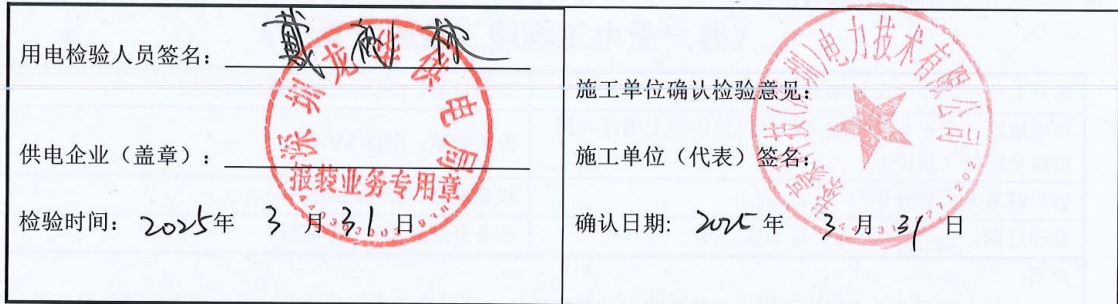 用电检验人员签名：
供电企业（盖章）：
深圳龙华供电局
报装业务专用章
检验时间：2025年 3月31日
施工单位确认检验意见：
施工单位（代表）签名：
(深圳)电力技术有限公司
确认日期: 2025年 3月31日